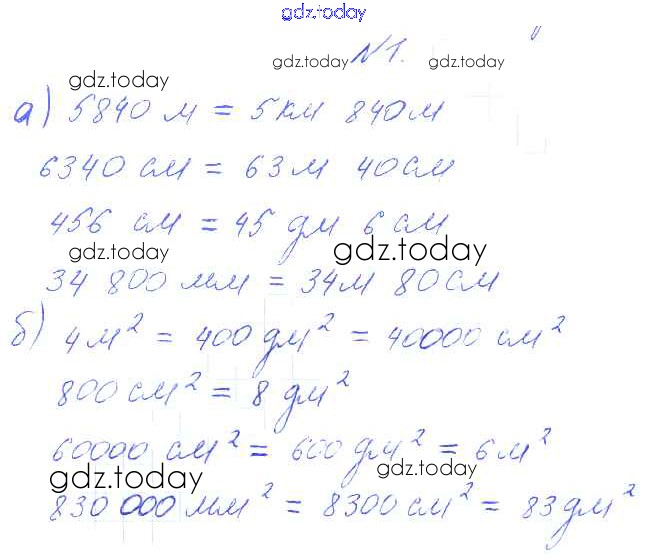 gdz.today
№1.
gdz.today gdz.today
gdz.today
а) 5840 м = 5 км 840 м
6340 см = 63 м 40 см
456 см = 45 дм 6 см
gdz.today gdz.today
34 800 мм = 34 м 80 см
б) 4 м² = 400 дм² = 40000 см²
gdz.today
800 см² = 8 дм²
60000 см² = 600 дм² = 6 м²
gdz.today gdz.today
830 000 мм² = 8300 см² = 83 дм²